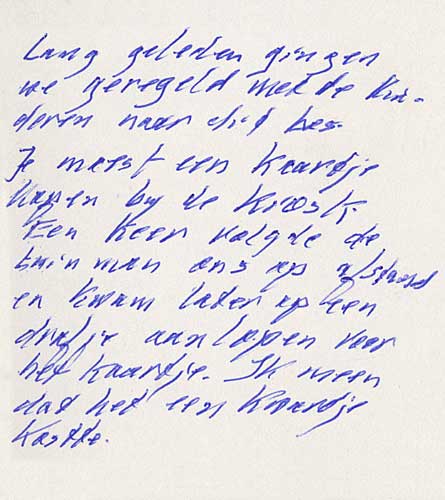 Lang geleden gingen
we geregeld met de kin-
deren naar dit bos.
Je moest een kaartje
kopen bij de kiosk.
Een keer volgde de
tuinman ons op afstand
en kwam later op een
drafje aanlopen voor
het kaartje. Ik meen
dat het een kwartje
kostte.